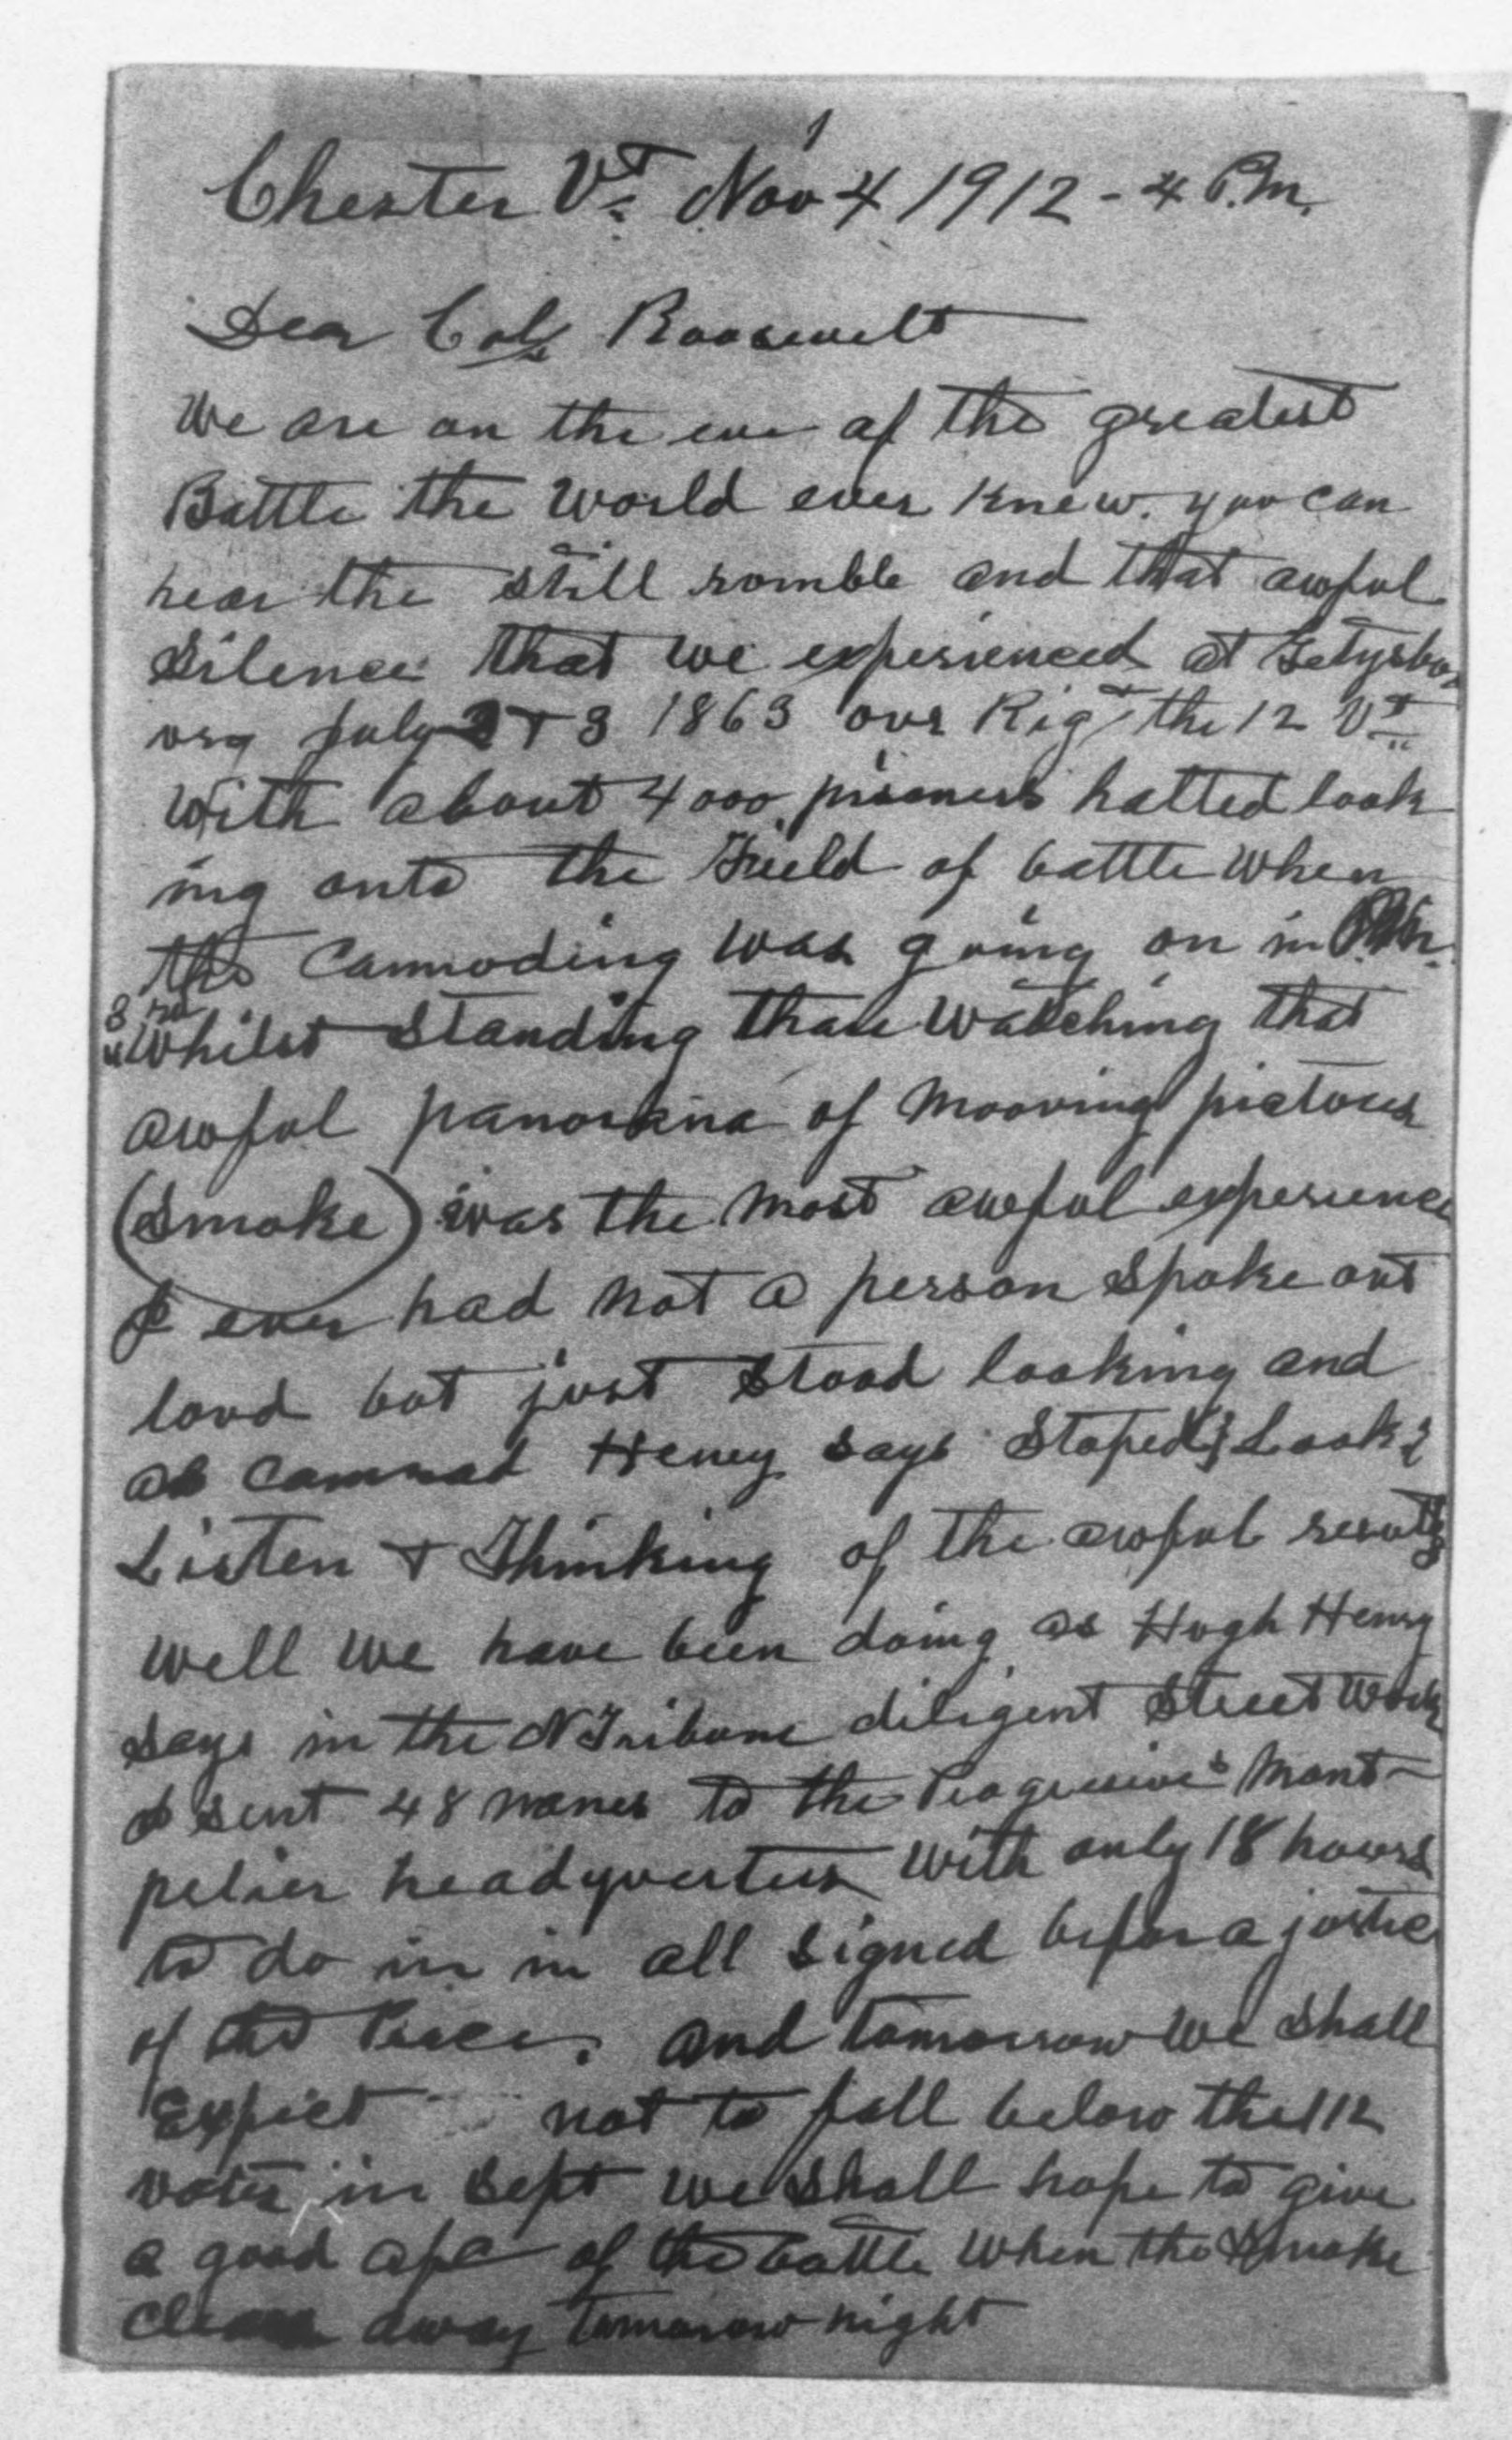 1
Chester Vt. Nov 4 1912 - 4 P.m.
Dear Col. Roosevelt
We are on the eve of the greatest
Battle the World ever Knew. you can
hear the still romble and that awful
Silence that we experienced at
urg July 2 + 3 1863 our Rigt the 12 Vt
With about 4000 prisoners halted look
ing onto the Field of battle When
the Cannoding Was going on in P.m.
3 rd
Whilst Standing thare Watching that
awful panorama of Mooving pictures
(Smoke) was the Most awful experience
I ever had Not a person Spoke out
loud but just Stood looking and
as Henry says Stoped & Look &
Listen + Thinking of the awful results
Well We have been doing as Hugh Henry
says in the N Tribune diligent Street Work
I sent 48 names to the Progressive's Mont-
pelier headquarters With only 18 hours
to do in in all Signed before a justice
of the Peace. and tomorrow We Shall
Expect not to fall below the 112
votes in Sept We Shall hope to give
a good of the battle When the Smoke
away tomorrow night